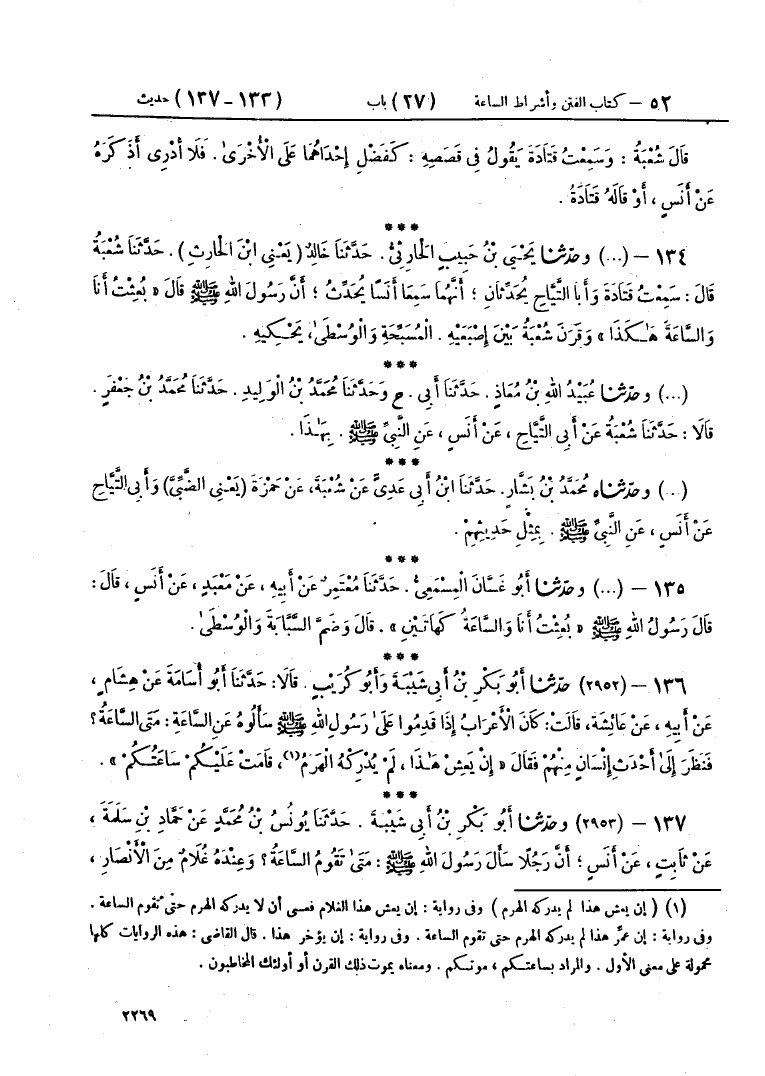 ٥٢ – كتاب الفتن وأشراط الساعة (٢٧) باب (١٣٣ – ١٣٧) حديث
قَالَ شُعْبَةُ : وَسَمِعْتُ قَتَادَةَ يَقُولُ فِي قَصَصِهِ : كَفَضْلِ إِحْدَاهُمَا عَلَى الْأُخْرَىٰ . فَلَا أَدْرِي أَذَكَرَهُ
عَنْ أَنَسٍ ، أَوْ قَالَهُ قَتَادَةُ .
***
١٣٤ – (...) وحدّثنا يَحْيَىٰ بْنُ حَبِيبٍ الْحَارِثِيُّ . حَدَّثَنَا خَالِدٌ ( يَعْنِي ابْنَ الْحَارِثِ ) . حَدَّثَنَا شُعْبَةُ
قَالَ : سَمِعْتُ قَتَادَةَ وَأَبَا التَّيَّاحِ يُحَدِّثَانِ ؛ أَنَّهُمَا سَمِعَا أَنَسًا يُحَدِّثُ ؛ أَنَّ رَسُولَ اللهِ ﷺ قَالَ « بُعِثْتُ أَنَا
وَالسَّاعَةَ هَـٰكَذَا » وَقَرَنَ شُعْبَةُ بَيْنَ إِصْبَعَيْهِ . الْمُسَبِّحَةِ وَالْوُسْطَىٰ ، يَحْكِيهِ .
***
(...) وحدّثنا عُبَيْدُ اللهِ بْنُ مُعَاذٍ . حَدَّثَنَا أَبِي . ح وَحَدَّثَنَا مُحَمَّدُ بْنُ الْوَلِيدِ . حَدَّثَنَا مُحَمَّدُ بْنُ جَعْفَرٍ .
قَالَا : حَدَّثَنَا شُعْبَةُ عَنْ أَبِي التَّيَّاحِ ، عَنْ أَنَسٍ ، عَنِ النَّبِيِّ ﷺ . بِهَـٰذَا .
***
(...) وحدّثناه مُحَمَّدُ بْنُ بَشَّارٍ . حَدَّثَنَا ابْنُ أَبِي عَدِيٍّ عَنْ شُعْبَةَ ، عَنْ حَمْزَةَ (يَعْنِي الضَّبِّيَّ) وَأَبِي التَّيَّاحِ
عَنْ أَنَسٍ ، عَنِ النَّبِيِّ ﷺ . بِمِثْلِ حَدِيثِهِمْ .
***
١٣٥ – (...) وحدّثنا أَبُو غَسَّانَ الْمِسْمَعِيُّ . حَدَّثَنَا مُعْتَمِرٌ عَنْ أَبِيهِ ، عَنْ مَعْبَدٍ ، عَنْ أَنَسٍ ، قَالَ :
قَالَ رَسُولُ اللهِ ﷺ « بُعِثْتُ أَنَا وَالسَّاعَةُ كَهَاتَيْنِ » . قَالَ وَضَمَّ السَّبَّابَةَ وَالْوُسْطَىٰ .
***
١٣٦ – (٢٩٥٢) حدّثنا أَبُو بَكْرِ بْنُ أَبِي شَيْبَةَ وَأَبُو كُرَيْبٍ . قَالَا : حَدَّثَنَا أَبُو أُسَامَةَ عَنْ هِشَامٍ ،
عَنْ أَبِيهِ ، عَنْ عَائِشَةَ ، قَالَتْ : كَانَ الْأَعْرَابُ إِذَا قَدِمُوا عَلَىٰ رَسُولِ اللهِ ﷺ سَأَلُوهُ عَنِ السَّاعَةِ : مَتَى السَّاعَةُ ؟
فَنَظَرَ إِلَىٰ أَحْدَثِ إِنْسَانٍ مِنْهُمْ فَقَالَ « إِنْ يَعِشْ هَـٰذَا ، لَمْ يُدْرِكْهُ الْهَرَمُ(١) ، قَامَتْ عَلَيْكُمْ سَاعَتُكُمْ » .
***
١٣٧ – (٢٩٥٣) وحدّثنا أَبُو بَكْرِ بْنُ أَبِي شَيْبَةَ . حَدَّثَنَا يُونُسُ بْنُ مُحَمَّدٍ عَنْ حَمَّادِ بْنِ سَلَمَةَ ،
عَنْ ثَابِتٍ ، عَنْ أَنَسٍ ؛ أَنَّ رَجُلًا سَأَلَ رَسُولَ اللهِ ﷺ : مَتَىٰ تَقُومُ السَّاعَةُ ؟ وَعِنْدَهُ غُلَامٌ مِنَ الْأَنْصَارِ ،
(١) ( إن يعش هذا لم يدركه الهرم ) وفي رواية : إن يعش هذا الغلام فعسى أن لا يدركه الهرم حتى تقوم الساعة .
وفي رواية : إن عمّر هذا لم يدركه الهرم حتى تقوم الساعة . وفي رواية : إن يؤخر هذا . قال القاضي : هذه الروايات كلها
محمولة على معنى الأول . والمراد بساعتكم ، موتكم . ومعناه يموت ذلك القرن أو أولئك المخاطبون .
٢٢٦٩